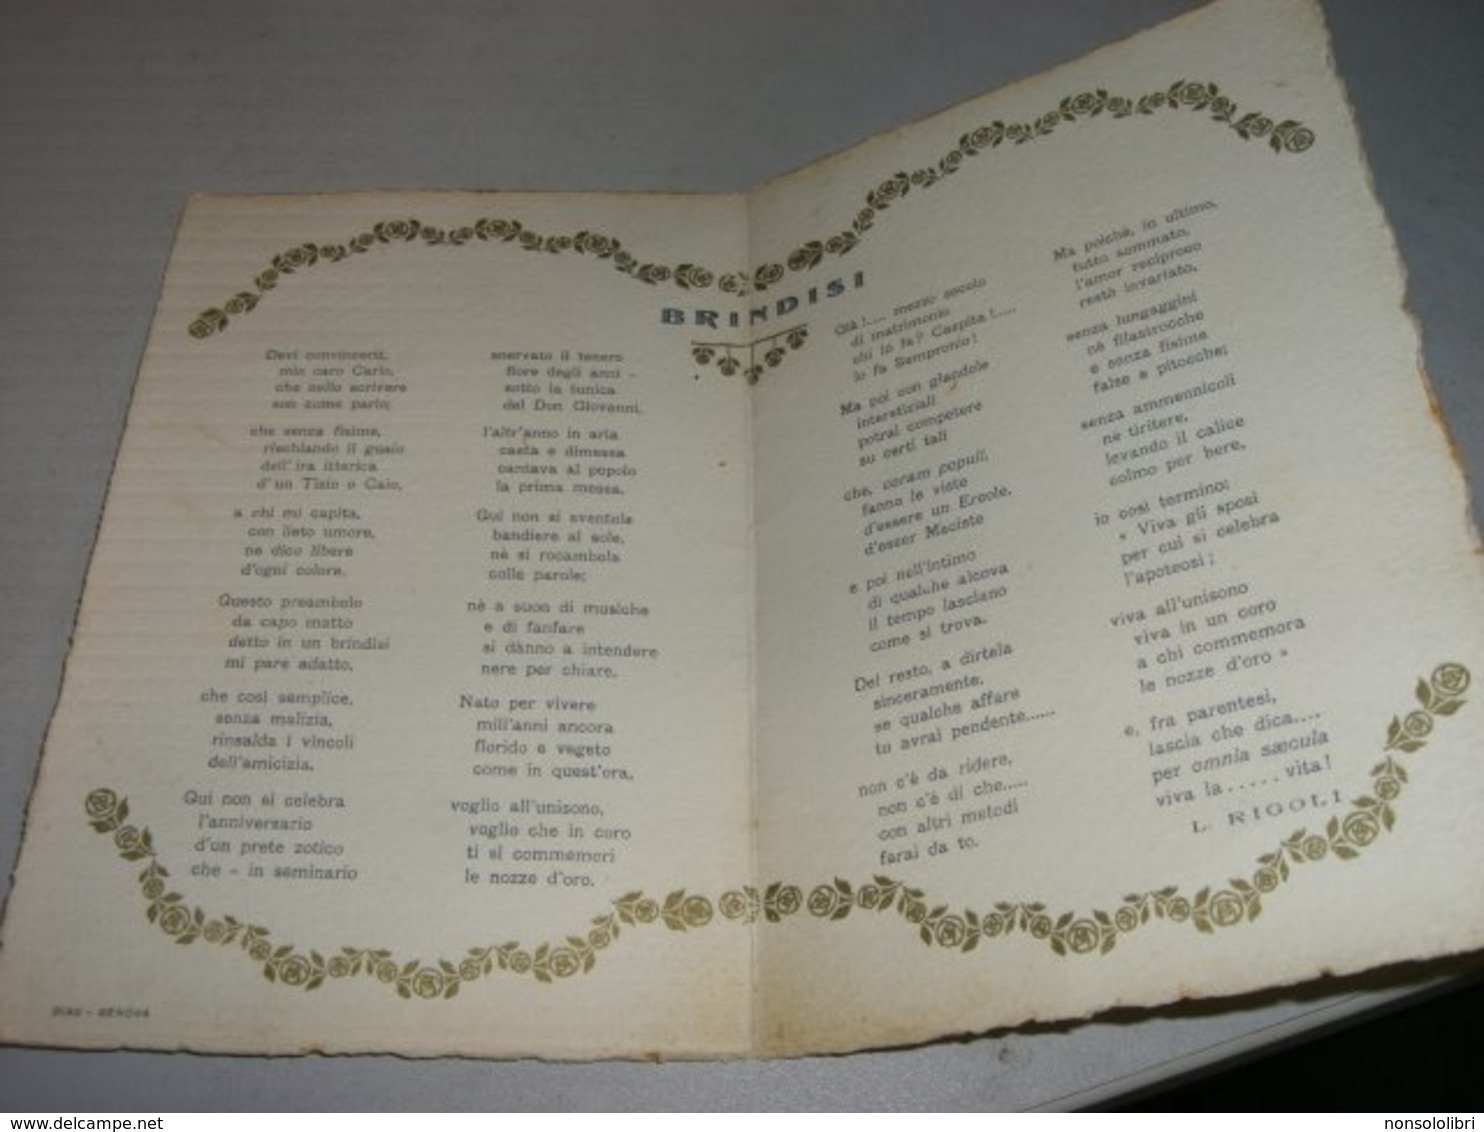 BRINDISI
Devi convincerti,
mio caro Carlo,
che nello scrivere
son come parlo;
che senza fisime,
rischiando il guaio
dell'ira itterica
d'un Tizio o Caio,
a chi mi capita,
con lieto umore,
ne dico libere
d'ogni colore.
Questo preambolo
da capo matto
detto in un brindisi
mi pare adatto,
che così semplice,
senza malizia,
rinsalda i vincoli
dell'amicizia.
Qui non si celebra
l'anniversario
d'un prete zotico
che - in seminario
snervato il tenero
fiore degli anni -
sotto la tunica
del Don Giovanni,
l'altr'anno in aria
casta e dimessa
cantava al popolo
la prima messa.
Qui non si sventola
bandiere al sole,
nè si rocambola
colle parole;
nè a suon di musiche
e di fanfare
si dànno a intendere
nere per chiare.
Nato per vivere
mill'anni ancora
florido e vegeto
come in quest'ora,
voglio all'unisono,
voglio che in coro
ti si commemori
le nozze d'oro.
Già !.... mezzo secolo
di matrimonio
chi lo fa? Caspita !....
lo fa Sempronio!
Ma poi con glandole
interstiziali
potrai competere
su certi tali
che, coram populi,
fanno le viste
d'essere un Ercole,
d'esser Maciste
e poi nell'intimo
di qualche alcova
il tempo lasciano
come si trova.
Del resto, a dirtela
sinceramente,
se qualche affare
tu avrai pendente......
non c'è da ridere,
non c'è di che.....
con altri metodi
farai da te.
Ma poichè, in ultimo,
tutto sommato,
l'amor reciproco
restò invariato,
senza lungaggini
nè filastrocche
e senza fisime
false e pitocche;
senza ammennicoli
nè tiritere,
levando il calice
colmo per bere,
io così termino:
« Viva gli sposi
per cui si celebra
l'apoteosi ;
viva all'unisono
viva in un coro
a chi commemora
le nozze d'oro »
e, fra parentesi,
lascia che dica....
per omnia sæcula
viva la ..... vita!
L. RIGOLI
GENOVA
delcampe.net
nonsololibri